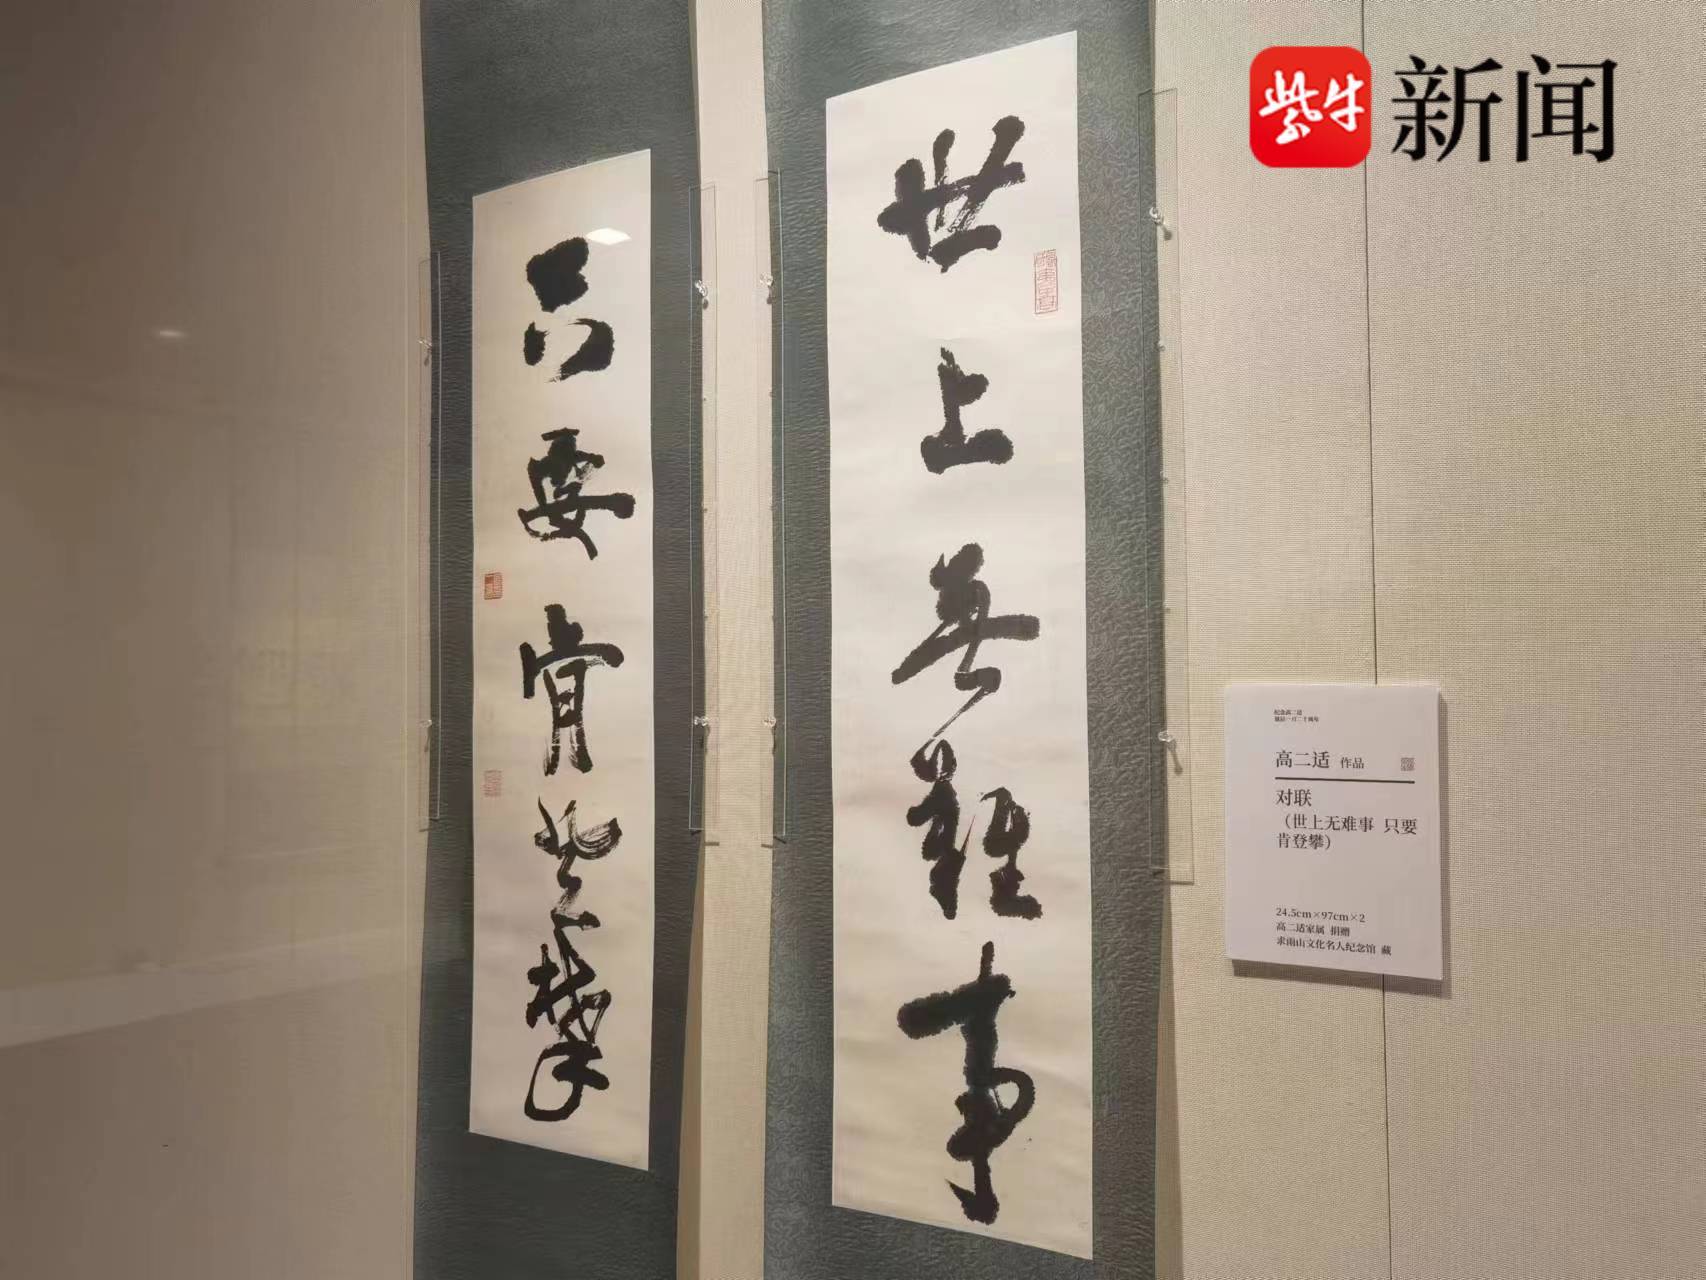 紫牛新闻
世上無難事
只要肯登攀
纪念高二适
诞辰一百二十周年
高二适 作品
对联
（世上无难事 只要
肯登攀）
24.5cm×97cm×2
高二适家属 捐赠
求雨山文化名人纪念馆 藏